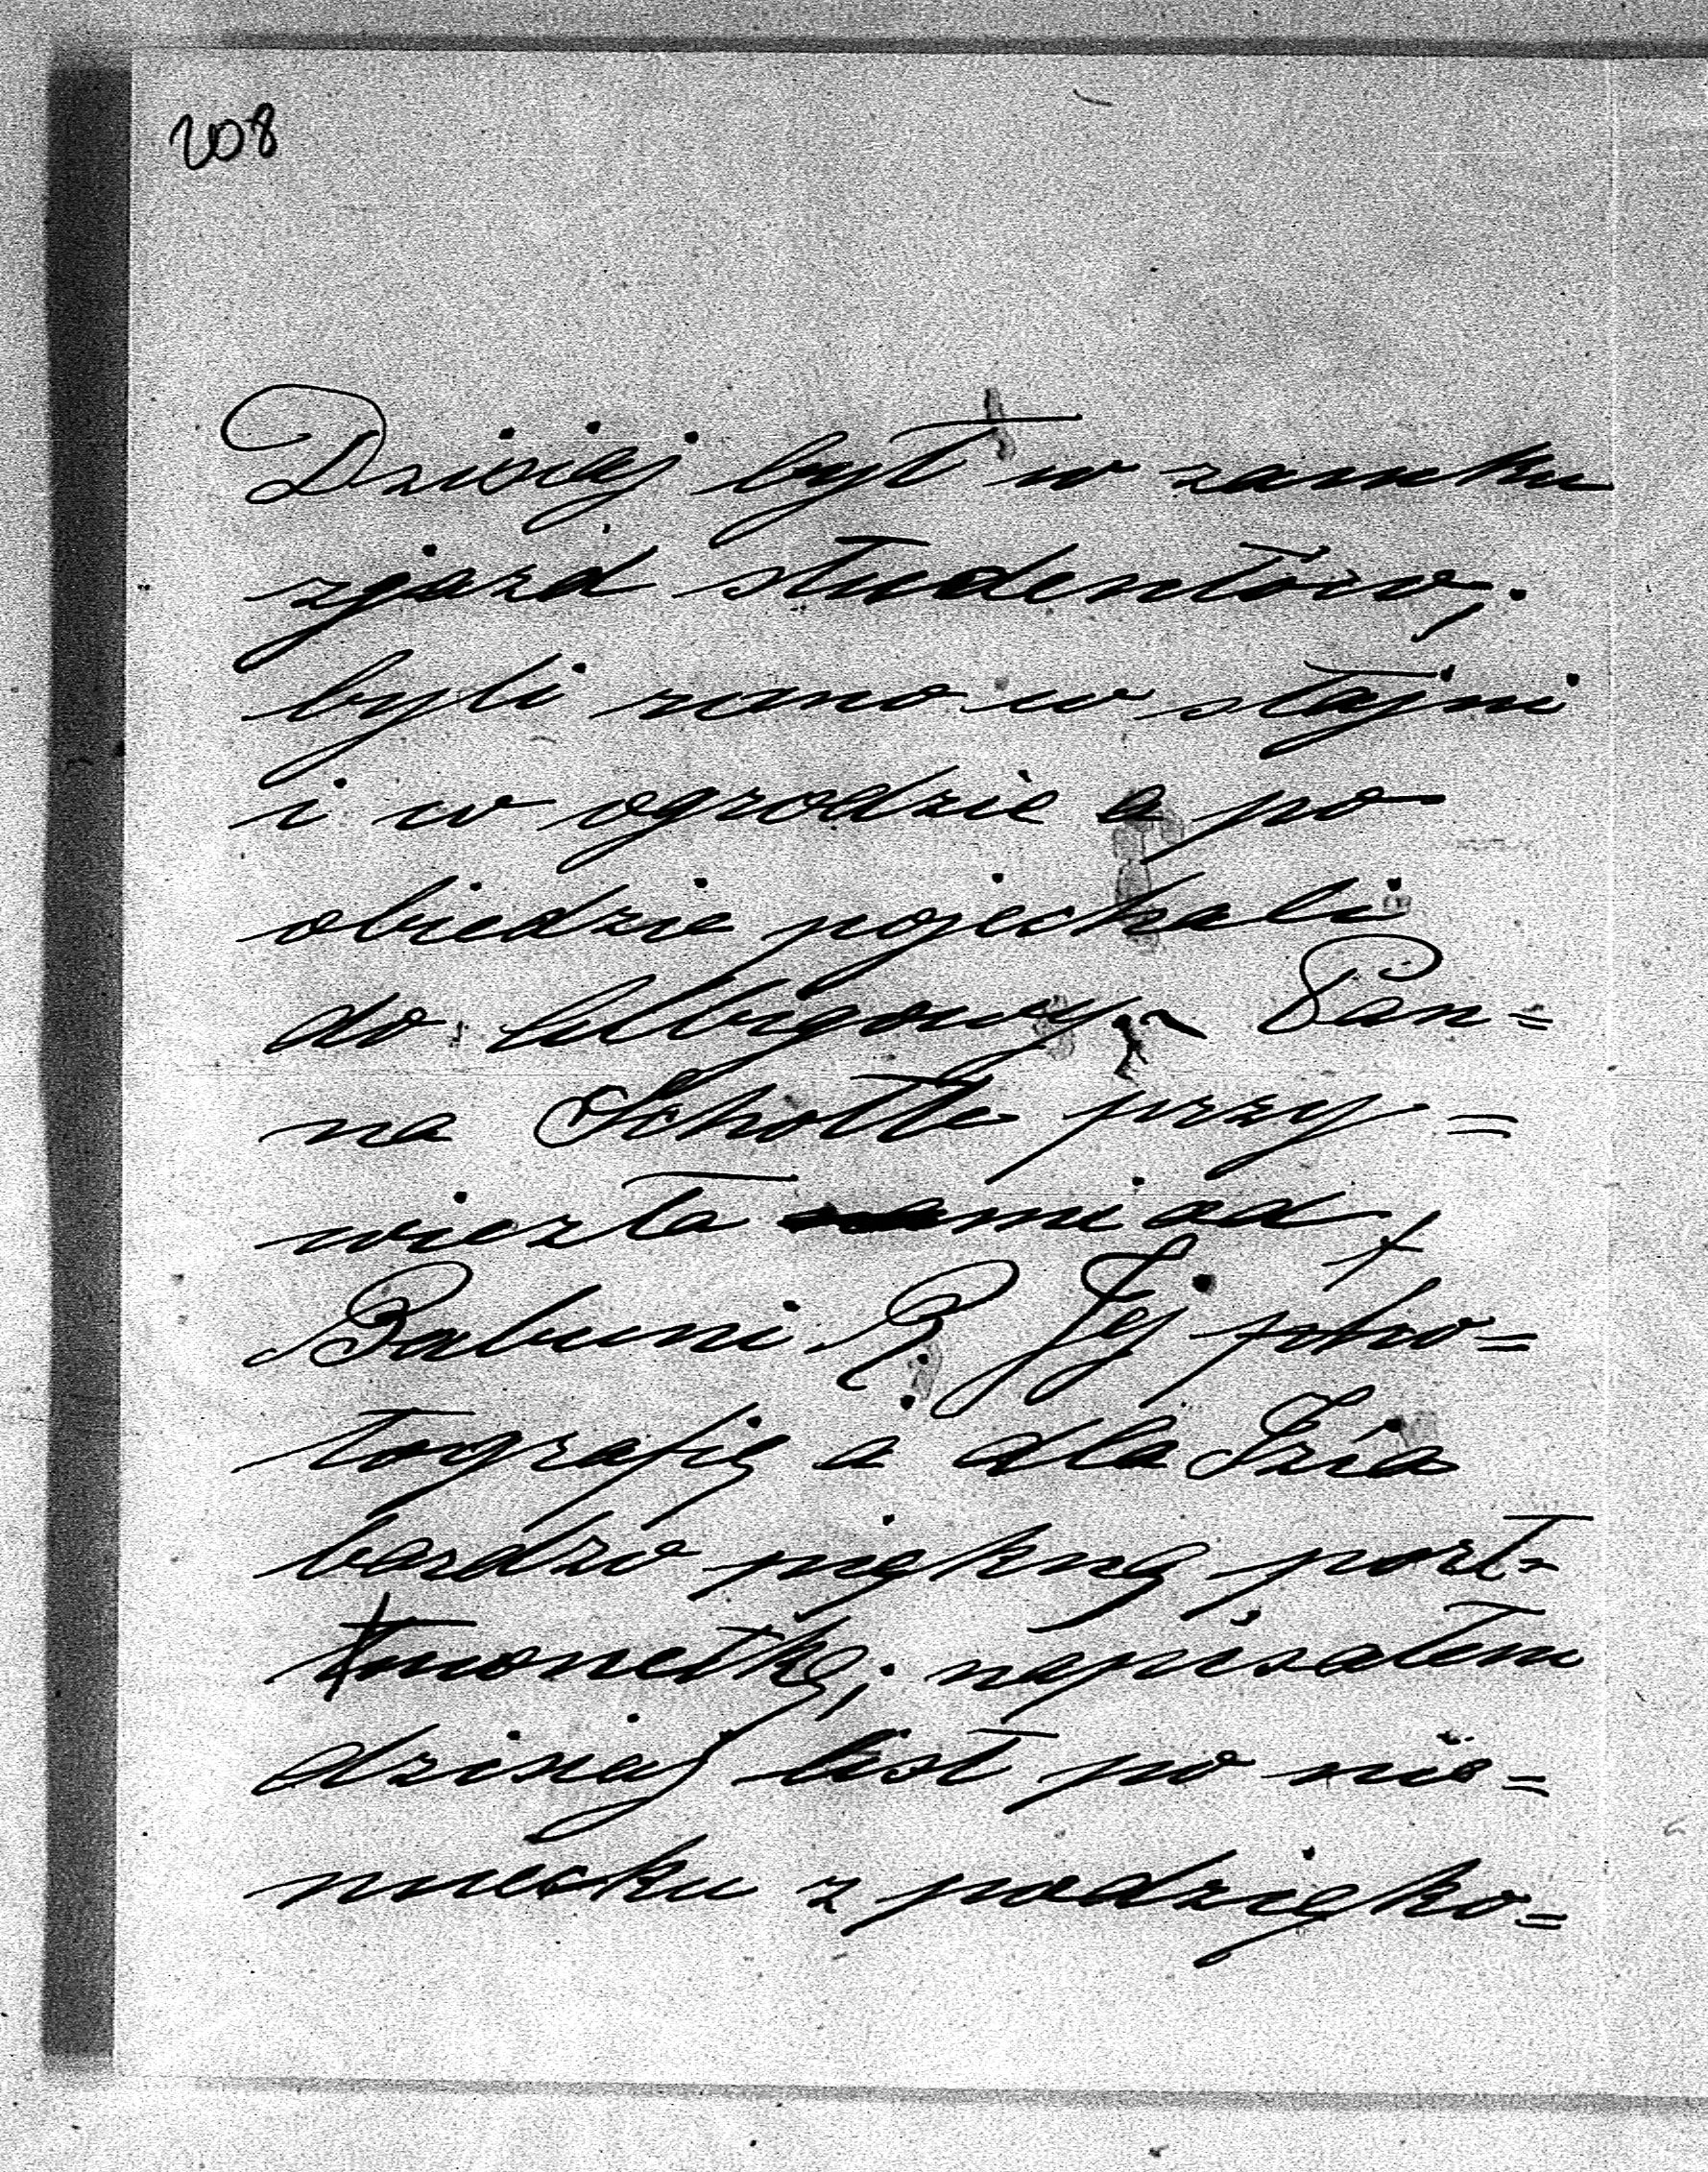 208
Dzisiej był w zamku
zjazd studentów;
byli rano w stajni
i w ogrodzie a po
obiedzie pojechali
do Albigowy. Pan=
na Schotte przy=
wiezła mi od
Babuni R. Jej pho=
tografię a dla Izia
bardzo piękną port=
monetkę; napisałem
dzisiej list po nie=
miecku z podzięko=